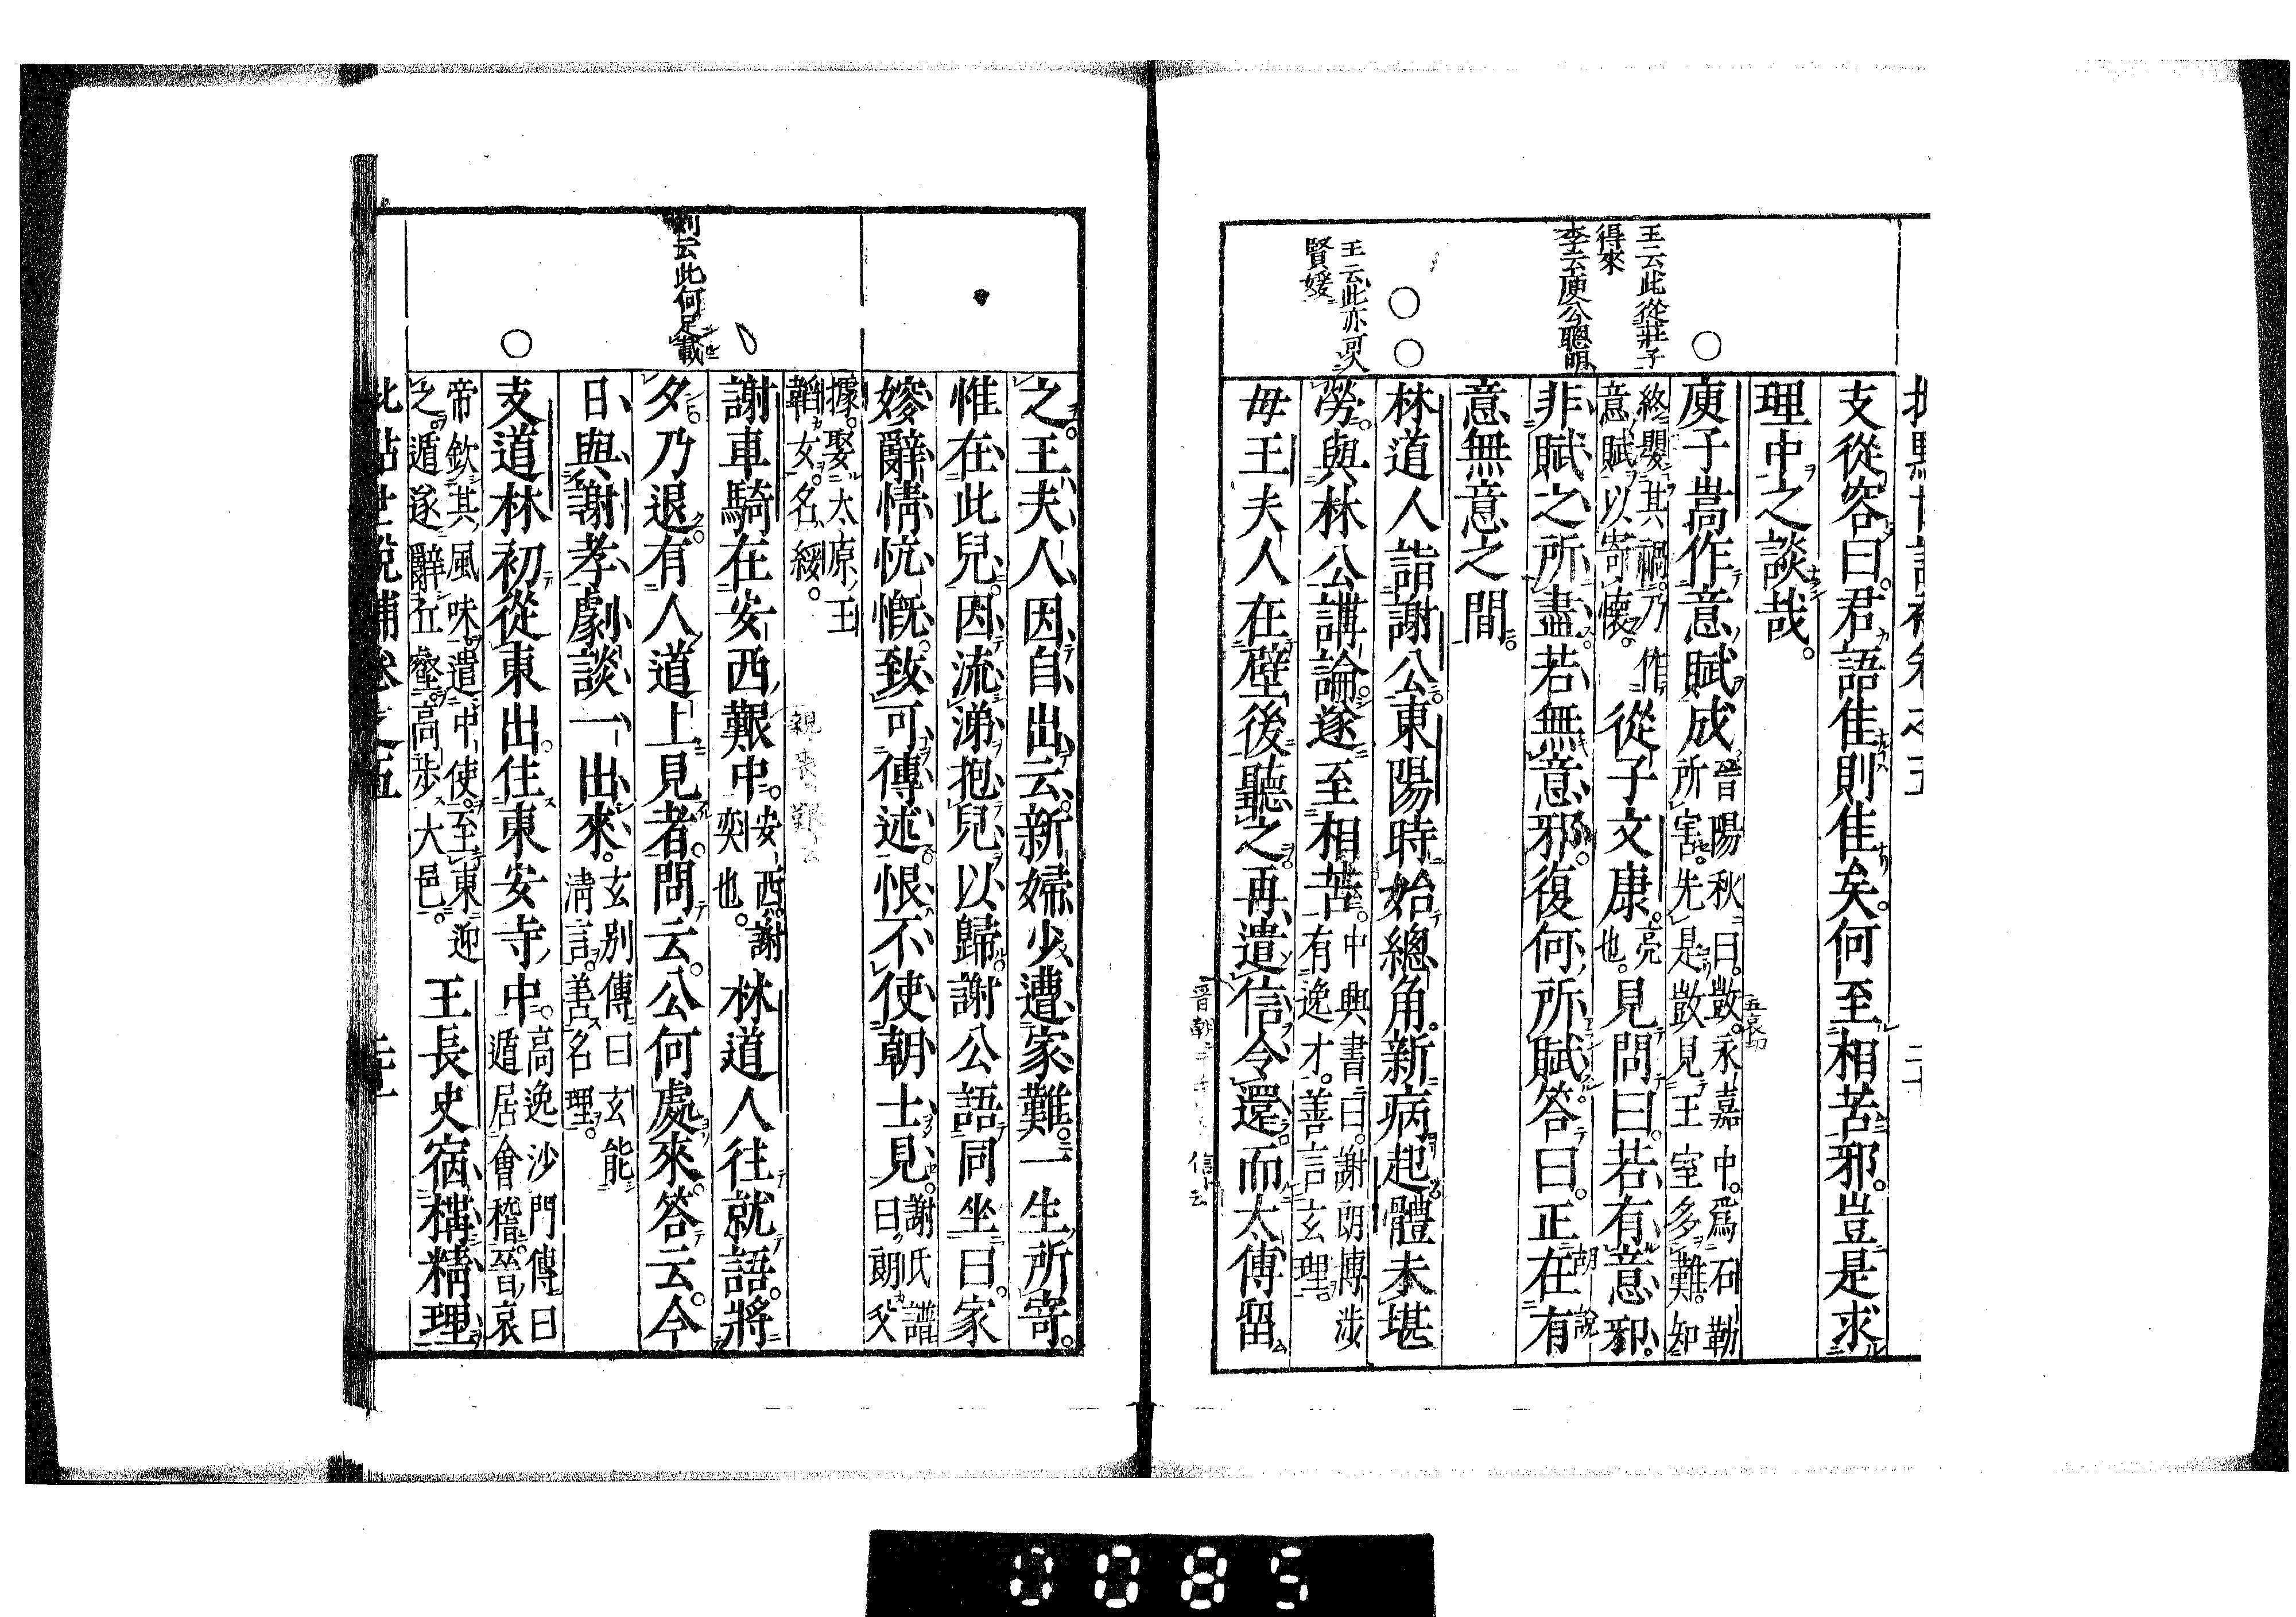 支從容曰君語佳則佳矣何至相苦邪豈是求
理中之談哉
庾子嵩作意賦成
晉陽秋曰敳永嘉中爲石勒
所害先是敳見王室多難知
終嬰其禍乃作
意賦以寄懷
從子文康
亮
也
見問曰若有意邪
非賦之所盡若無意邪復何所賦答曰正在有
意無意之間
林道人詣謝公東陽時始總角新病起體未堪
勞與林公講論遂至相苦
中興書曰謝朗博涉
有逸才善言玄理
母王夫人在壁後聽之再遣信令還而太傅留
王云此從莊子
得來
李云庾公聰明
王云此亦可入
賢媛
五哀切
之王夫人因自出云新婦少遭家難一生所寄
惟在此兒因流涕抱兒以歸謝公語同坐曰家
嫂辭情忼慨致可傳述恨不使朝士見
謝氏譜
曰朗父
據娶太原王
韜女名綏
謝車騎在安西艱中
安西謝
奕也
林道人往就語將
夕乃退有人道上見者問云公何處來答云今
日與謝孝劇談一出來
玄別傳曰玄能
淸言善名理
支道林初從東出住東安寺中
高逸沙門傳曰
遁居會稽晉哀
帝欽其風味遣中使至東迎
之遁遂辭丘壑高步大邑
王長史宿構精理
劉云此何足載
批點世說補卷之五
0085